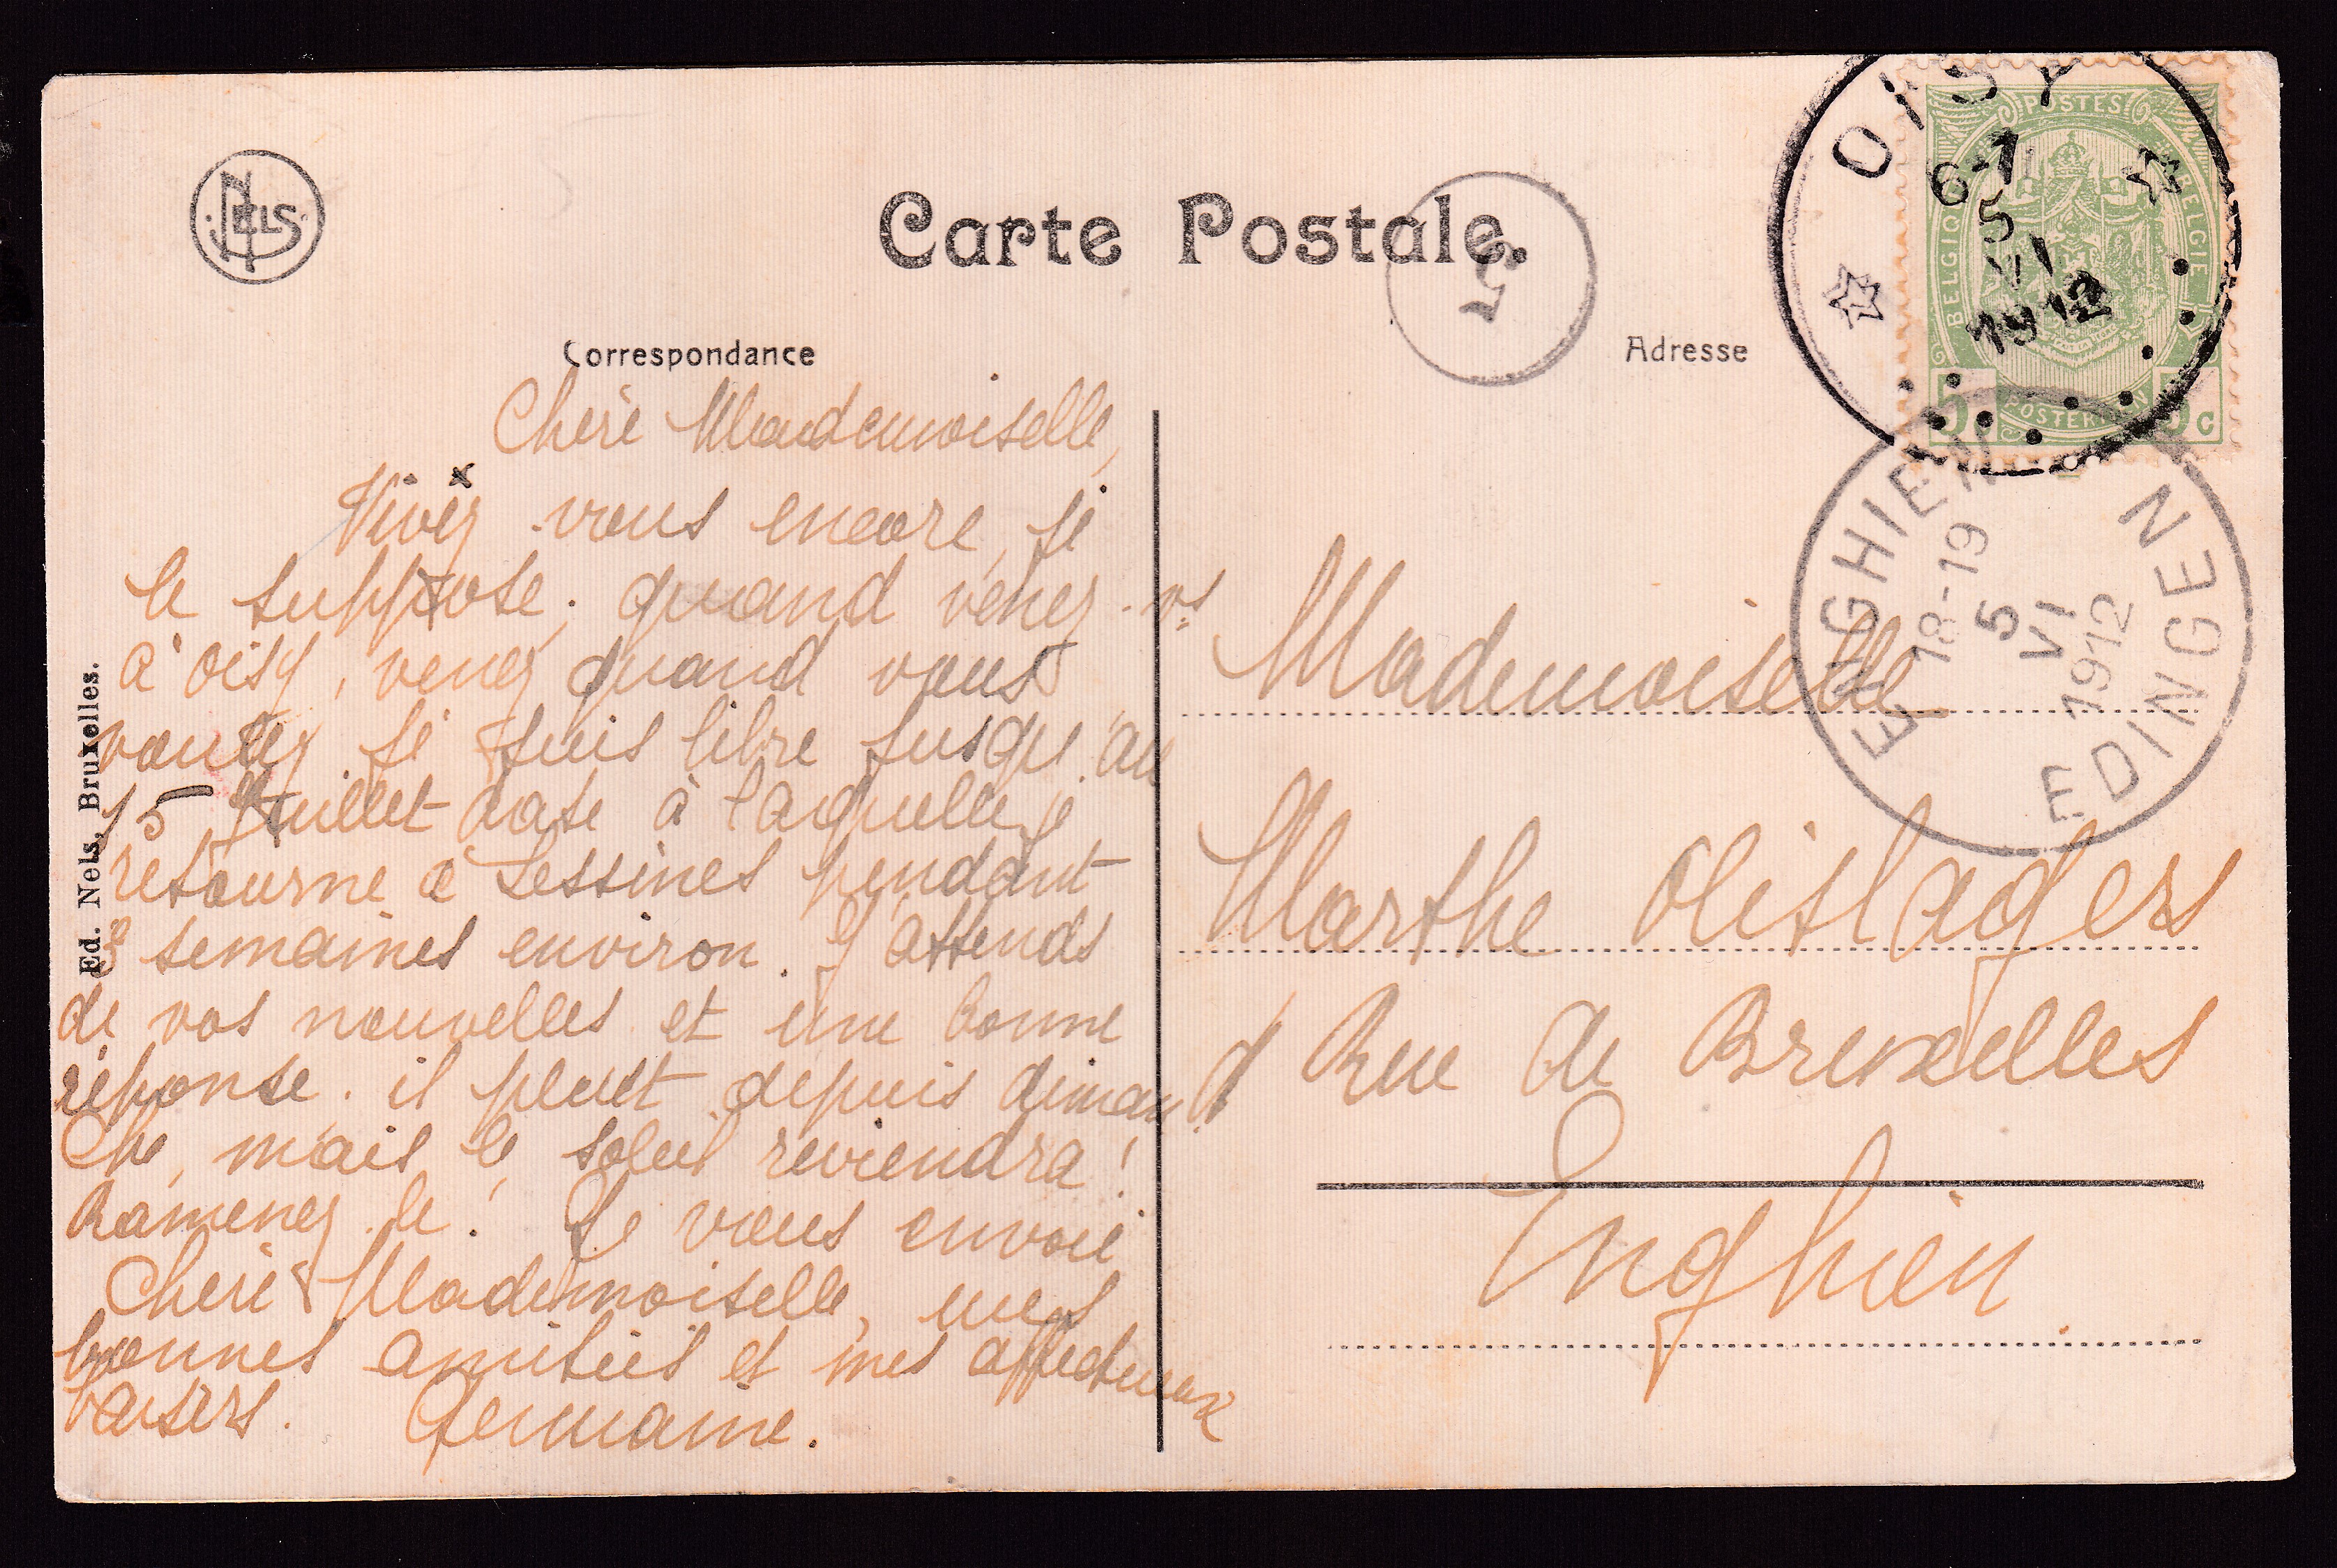 NELS
Carte Postale.
5
Correspondance
Adresse
OISY
6-7
5
VI
1912
POSTES
BELGIQUE
BELGIE
5
5c
POSTERIJEN
ENGHIEN
18-19
5
VI
1912
EDINGEN
Ed. Nels, Bruxelles.
Chère Mademoiselle,
Vivez vous encore, je
le suppose; quand venez-vs
à Oisy, venez quand vous
voulez je suis libre jusqu'au
15 Juillet date à laquelle je
retourne à Lessines pendant
3 semaines environ. J'attends
de vos nouvelles et une bonne
réponse. il pleut depuis diman
che, mais le soleil reviendra!
Ramenez-le! Je vous envoie
Chère Mademoiselle, mes
bonnes amitiés et mes affectueux
baisers. Germaine.
Mademoiselle
Marthe Olislagers
Rue de Bruxelles
Enghien